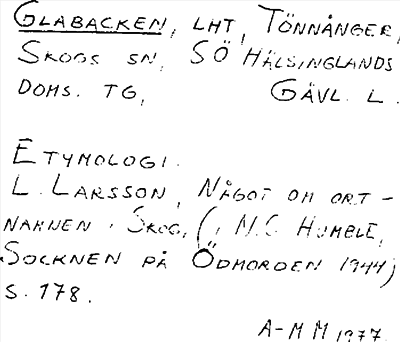 GLABACKEN, LHT, TÖNNÅNGER,
SKOGS SN, SÖ HÄLSINGLANDS
DOMS. TG, GÄVL. L.
ETYMOLOGI.
L. LARSSON, NÅGOT OM ORT-
NAMNEN I SKOG, (I N.C. HUMBLE,
SOCKNEN PÅ ÖDMORDEN 1944)
S. 178.
A-M M 1977.